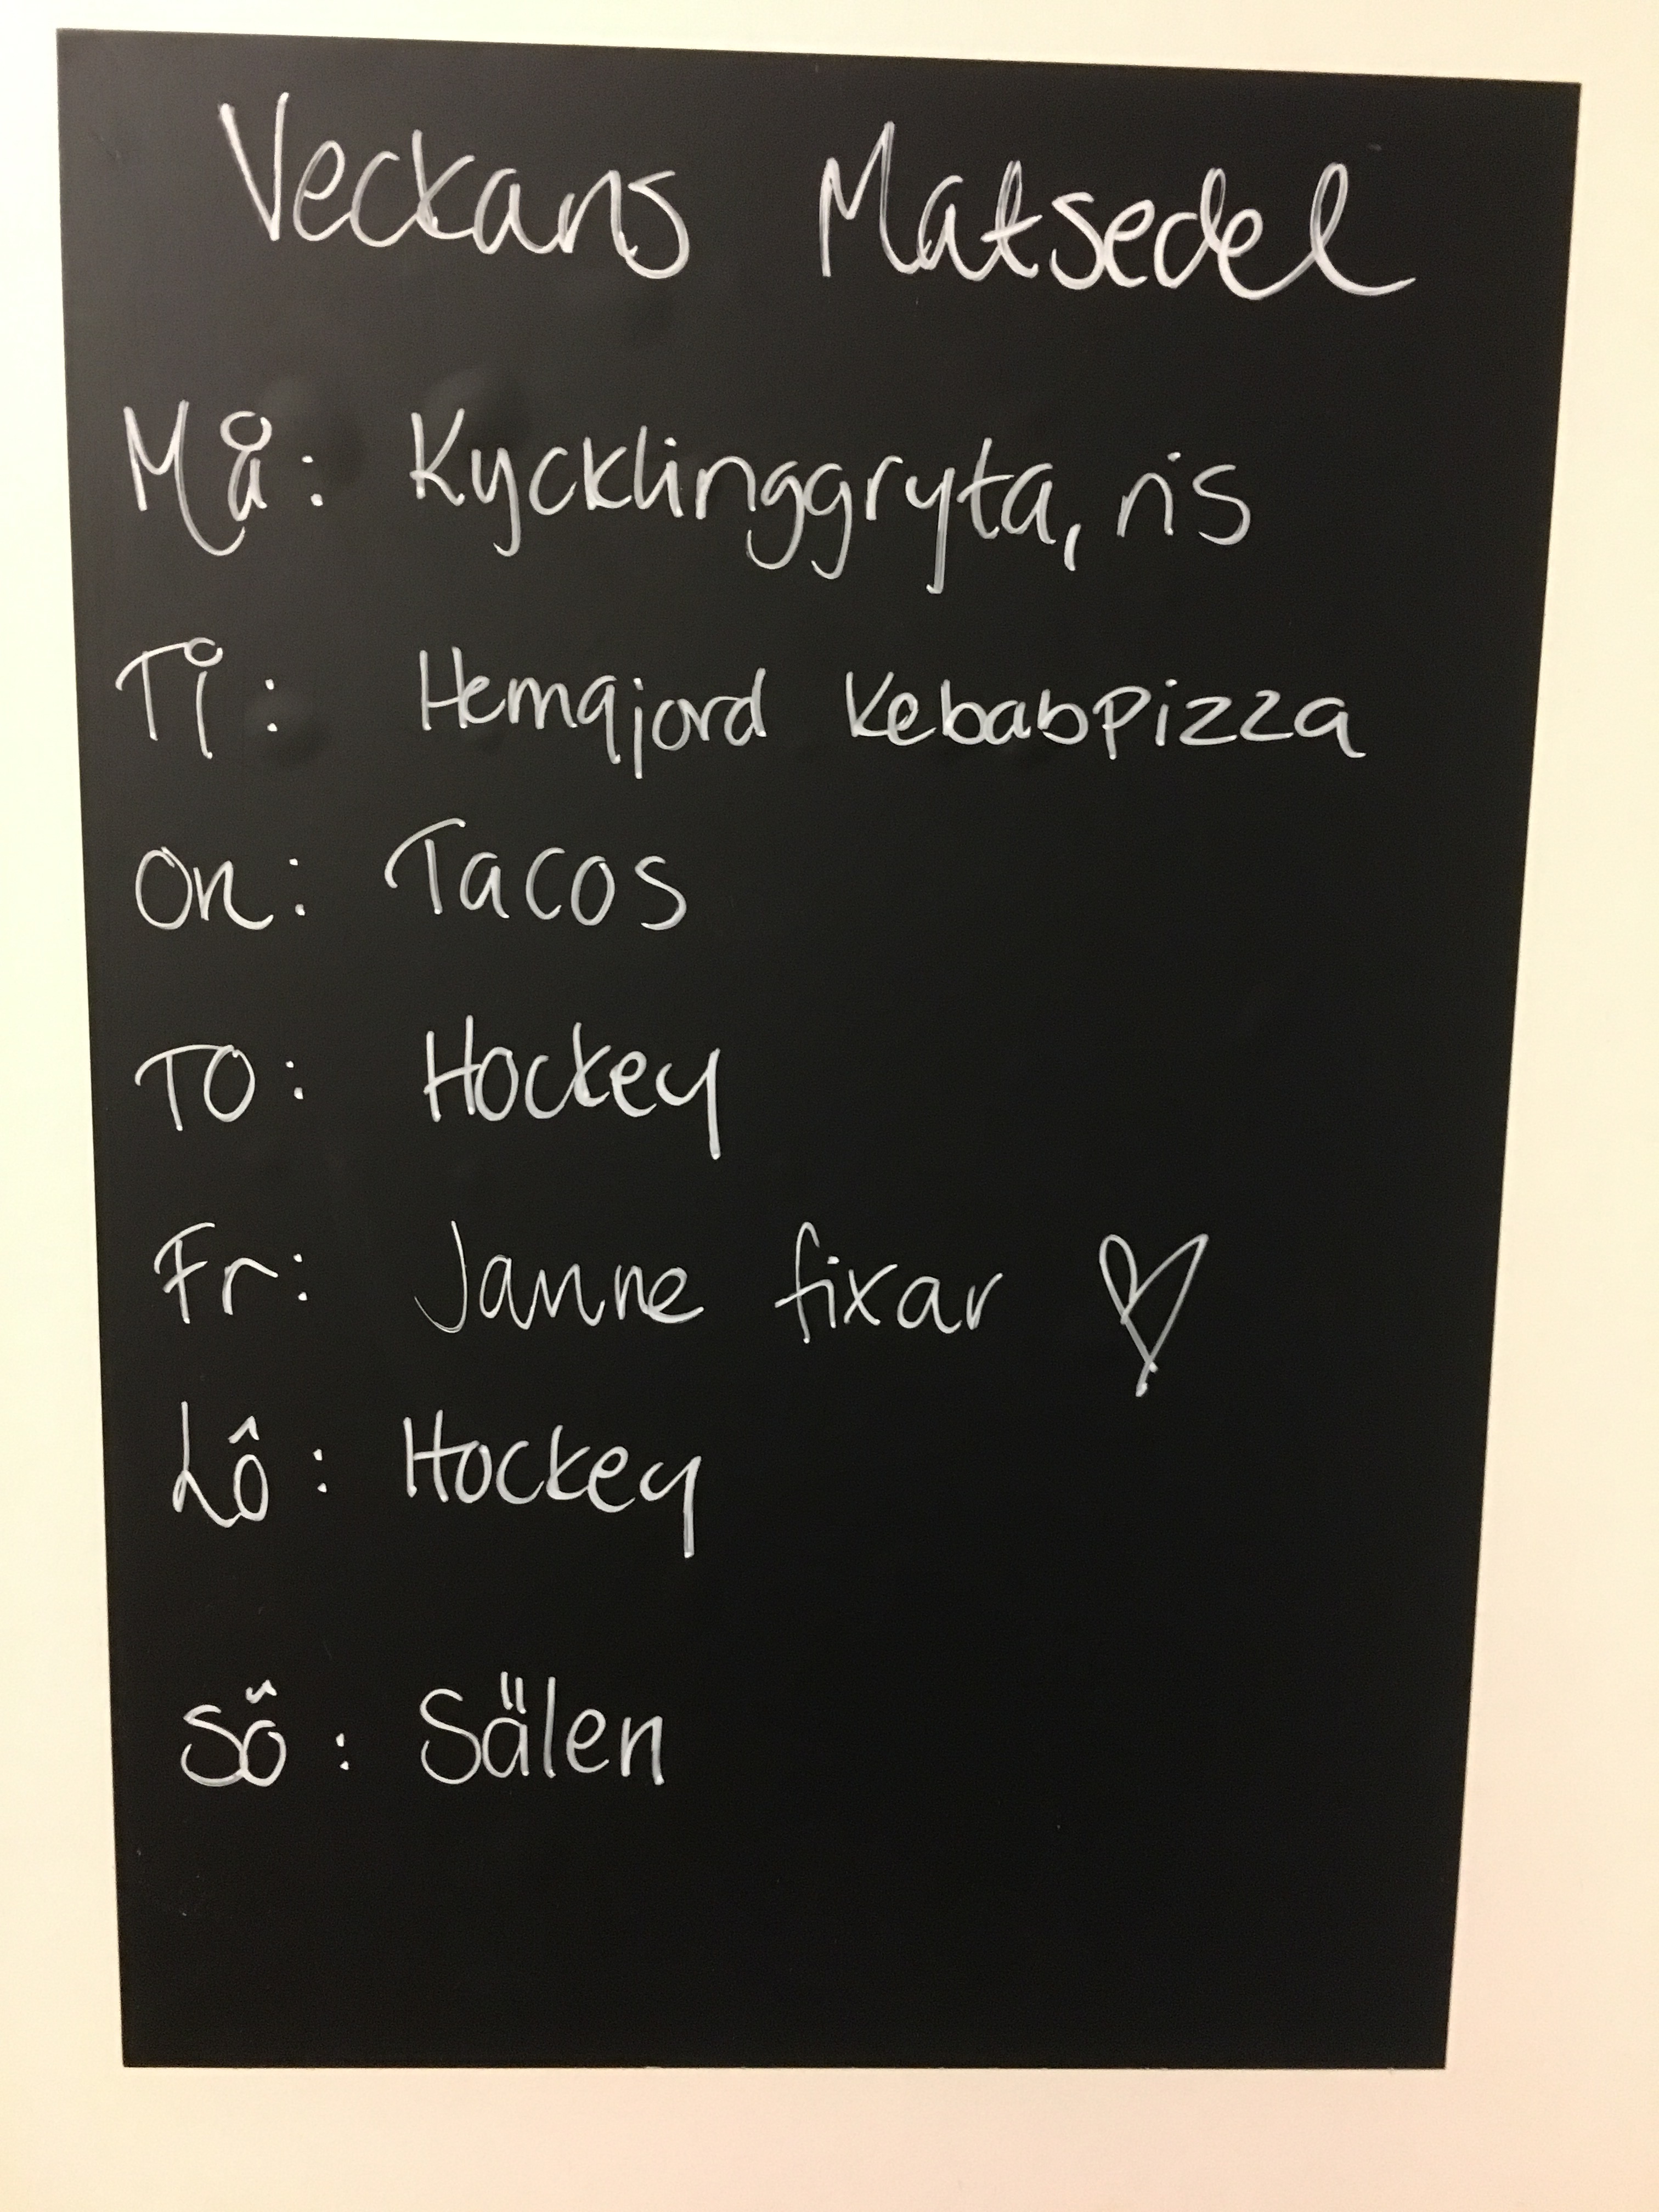 Veckans Matsedel
Må: Kycklinggryta, ris
Ti: Hemgjord Kebabpizza
On: Tacos
TO: Hockey
Fr: Janne fixar ♡
Lö: Hockey
Sö: Sälen